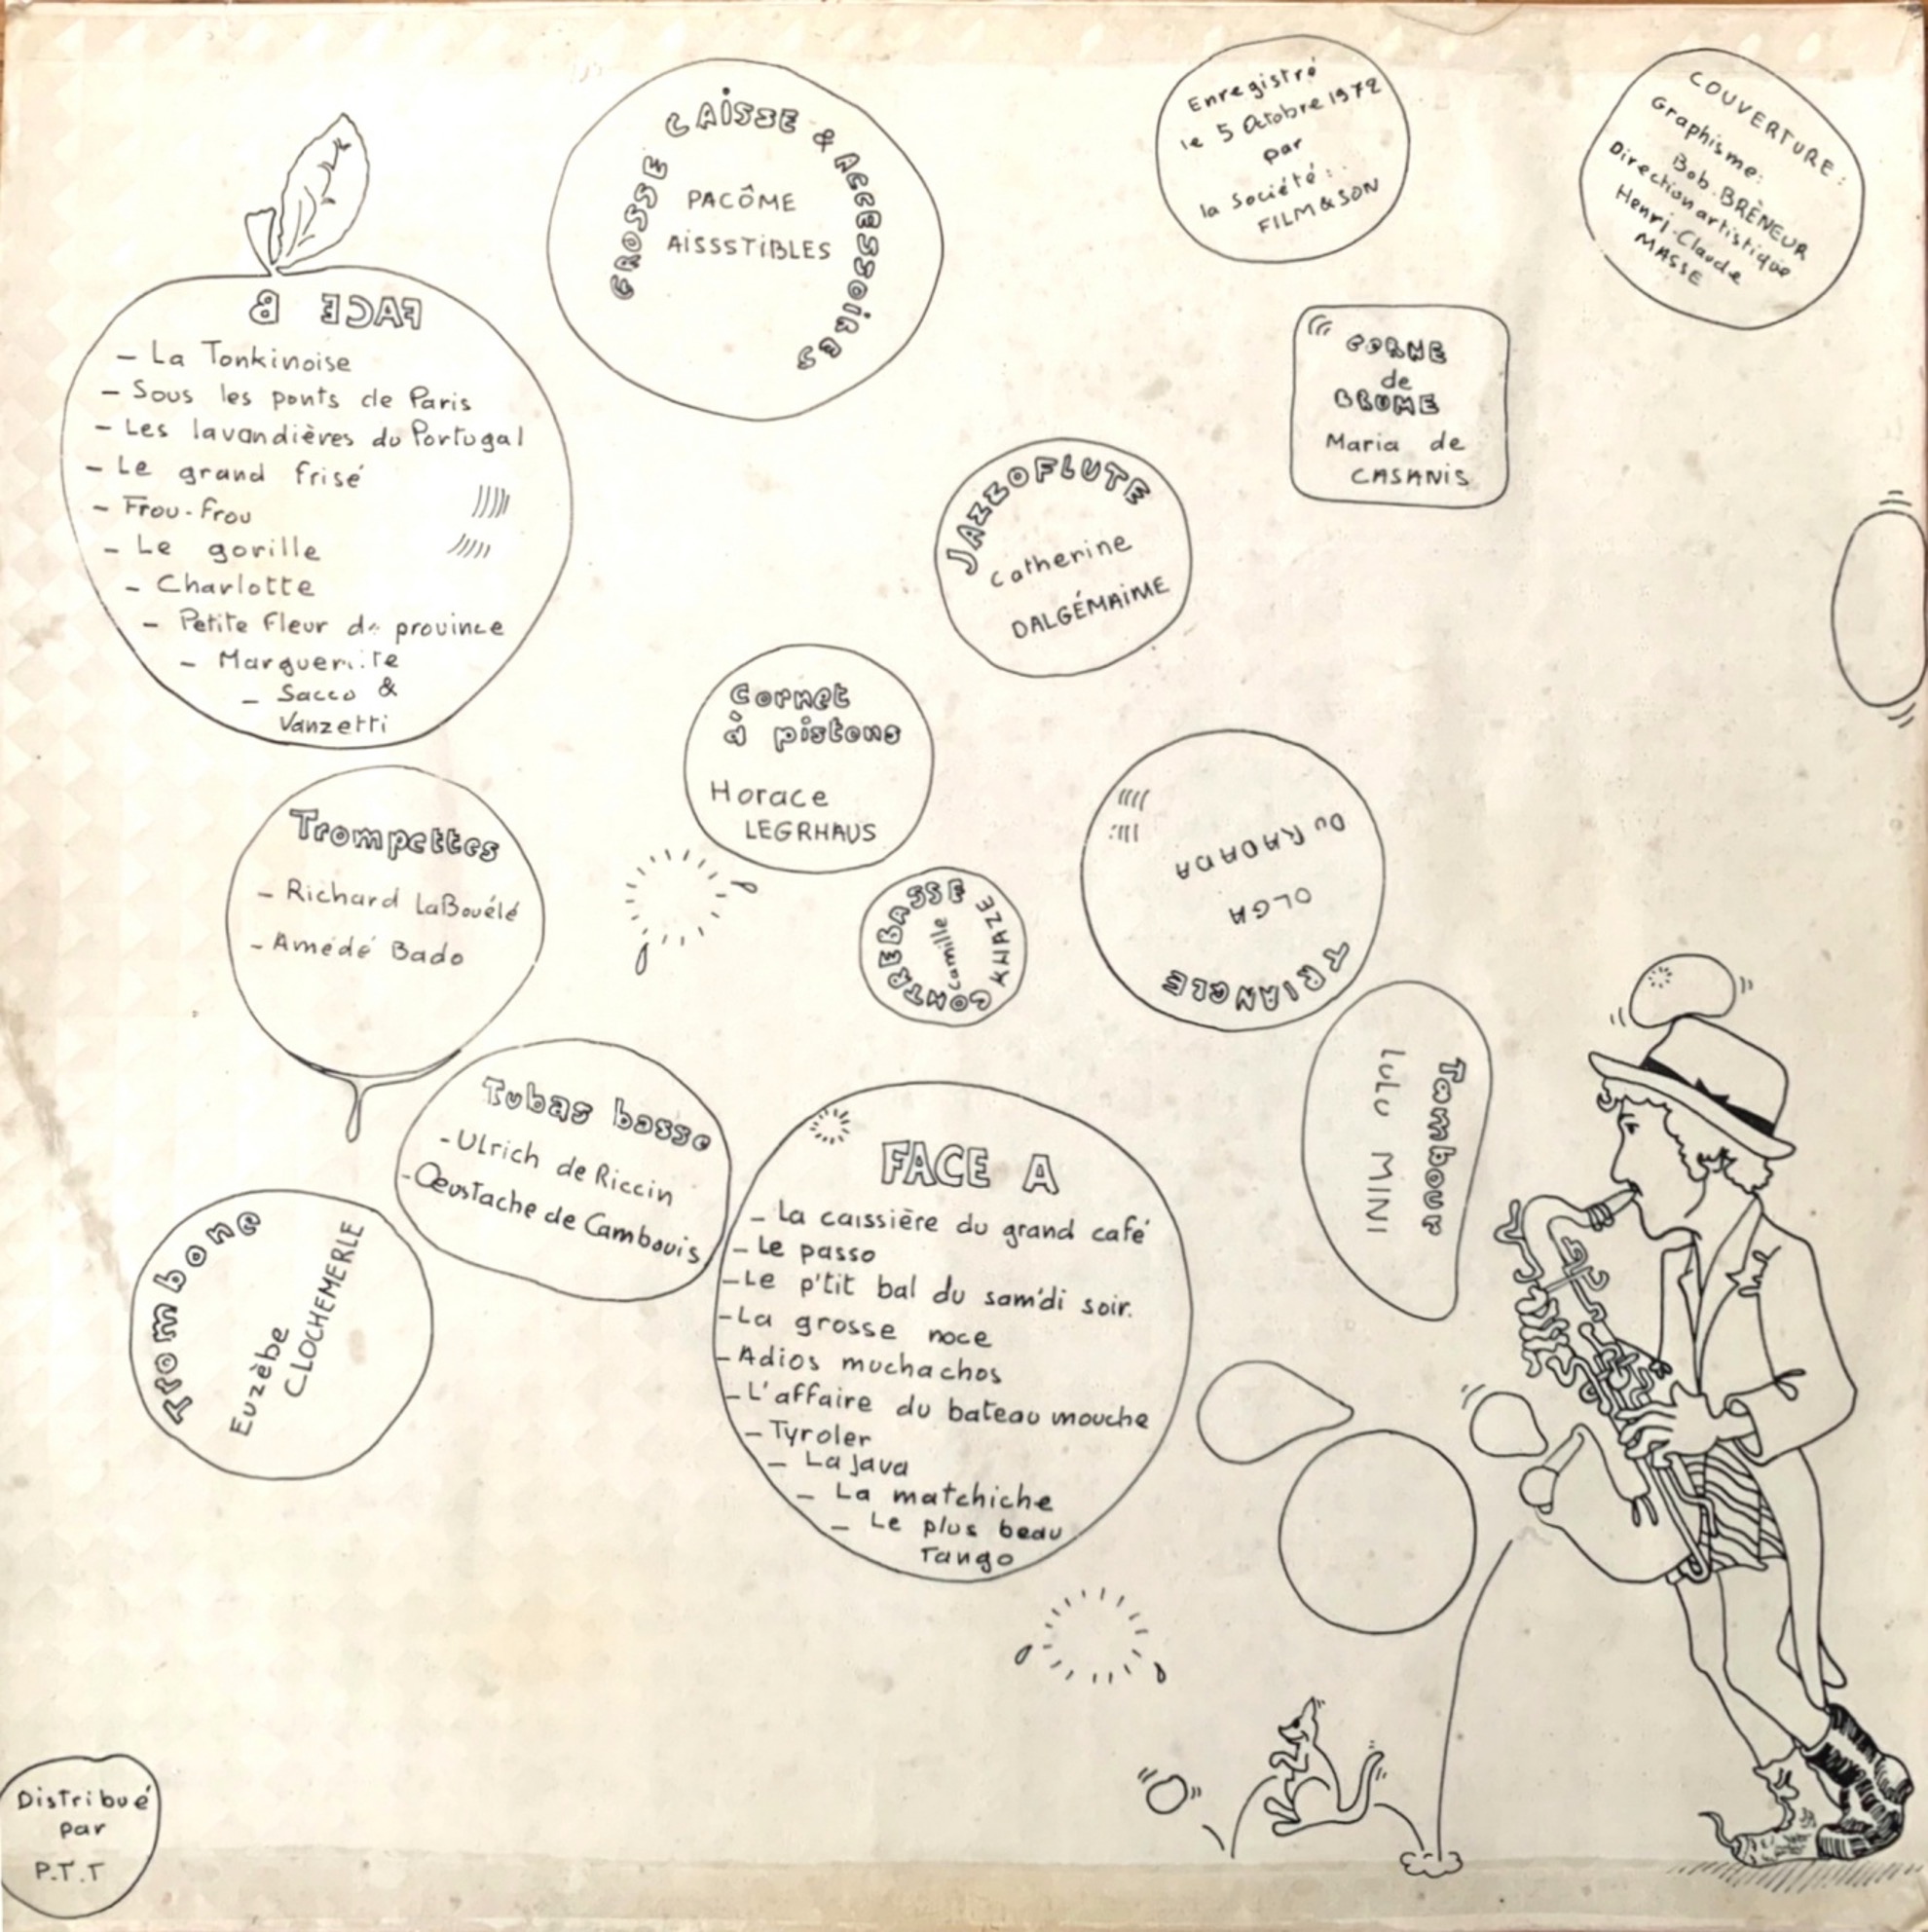 GROSSE CAISSE & ACCESSOIRES
PACÔME
AISSSTIBLES
Enregistré
le 5 Octobre 1972
par
la Société:
FILM & SON
COUVERTURE:
Graphisme:
Bob. BRÈNEUR
Direction artistique
Henri-Claude
MASSE
FACE B
- La Tonkinoise
- Sous les ponts de Paris
- Les lavandières du Portugal
- Le grand frisé
- Frou-frou
- Le gorille
- Charlotte
- Petite fleur de province
- Marguerite
- Sacco &
Vanzetti
CORNE
de
BRUME
Maria de
CASANIS
JAZZOFLUTE
Catherine
DALGÉMAIME
Cornet
à pistons
Horace
LEGRHAUS
Trompettes
- Richard LaBouélé
- Amédé Bado
CONTREBASSE
Camille
YHAZE
TRIANGLE
OLGA
DU RADADA
Tambour
LULU MINI
Tubas basse
- Ulrich de Riccin
- Œustache de Cambouis
Trombone
Euzèbe
CLOCHEMERLE
FACE A
- La caissière du grand café
- Le passo
- Le p'tit bal du sam'di soir.
- La grosse noce
- Adios muchachos
- L'affaire du bateau mouche
- Tyroler
- La Java
- La matchiche
- Le plus beau
Tango
Distribué
par
P.T.T